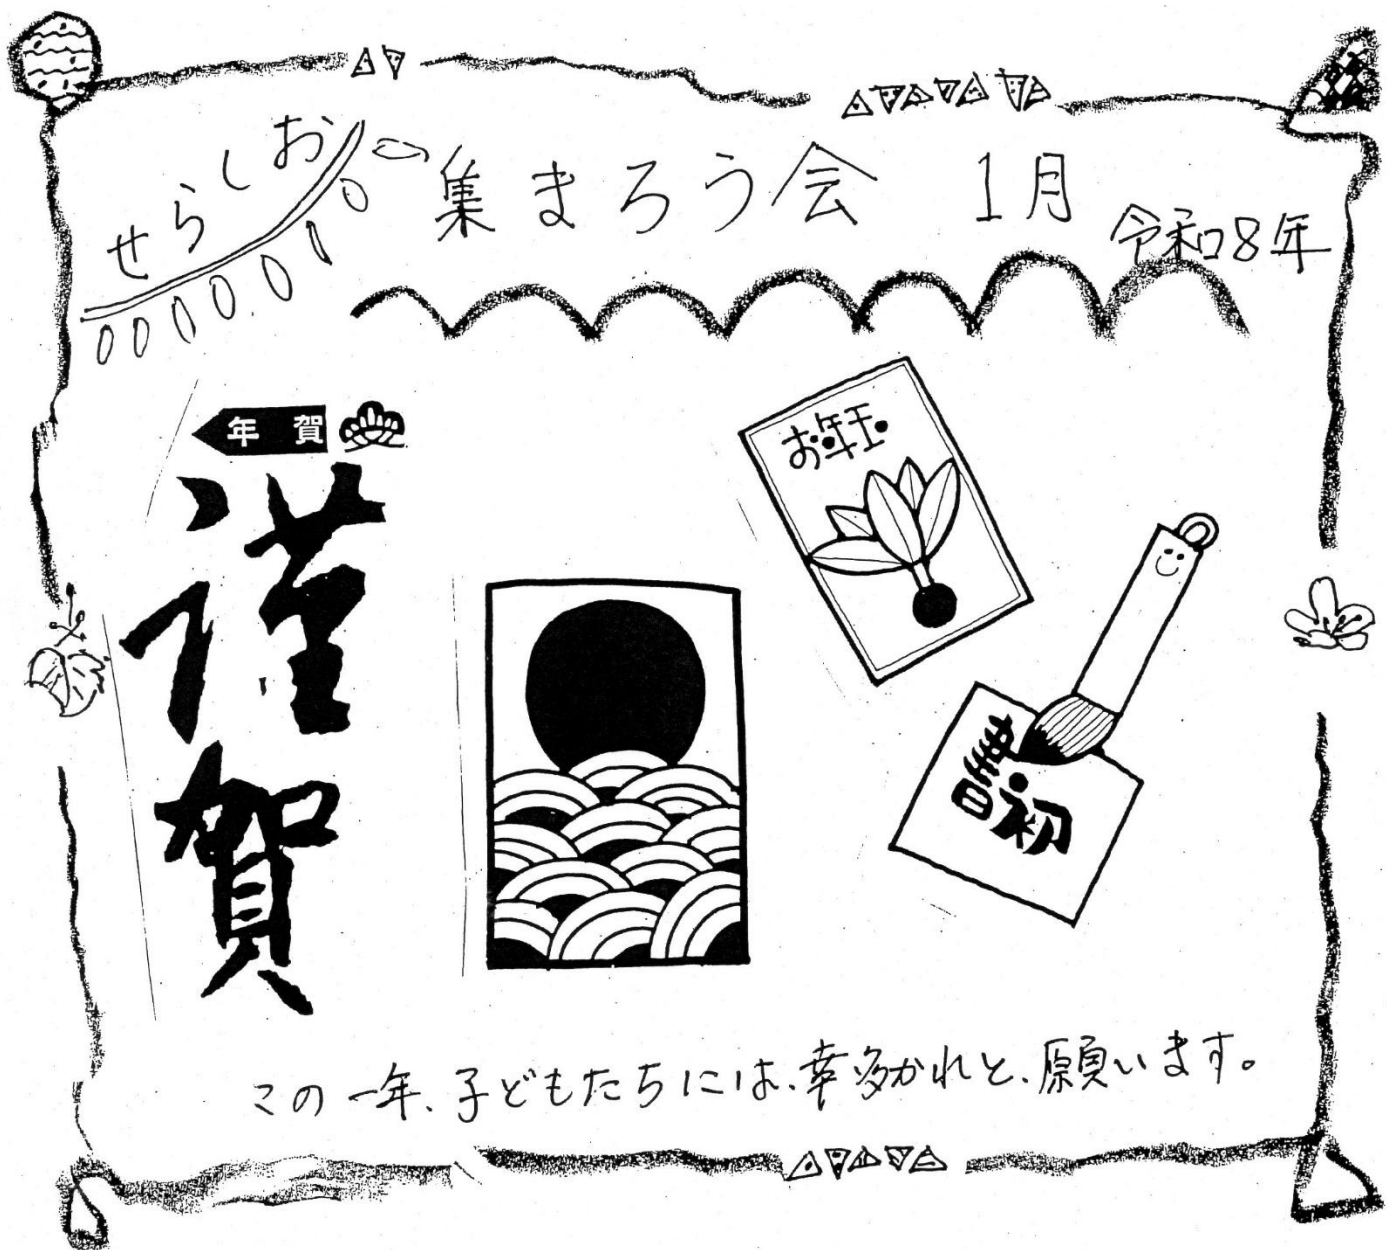 おしらせ
集まろう会 1月
令和8年
年賀
謹賀
お年玉
書初
この一年、子どもたちには、幸多かれと、願います。